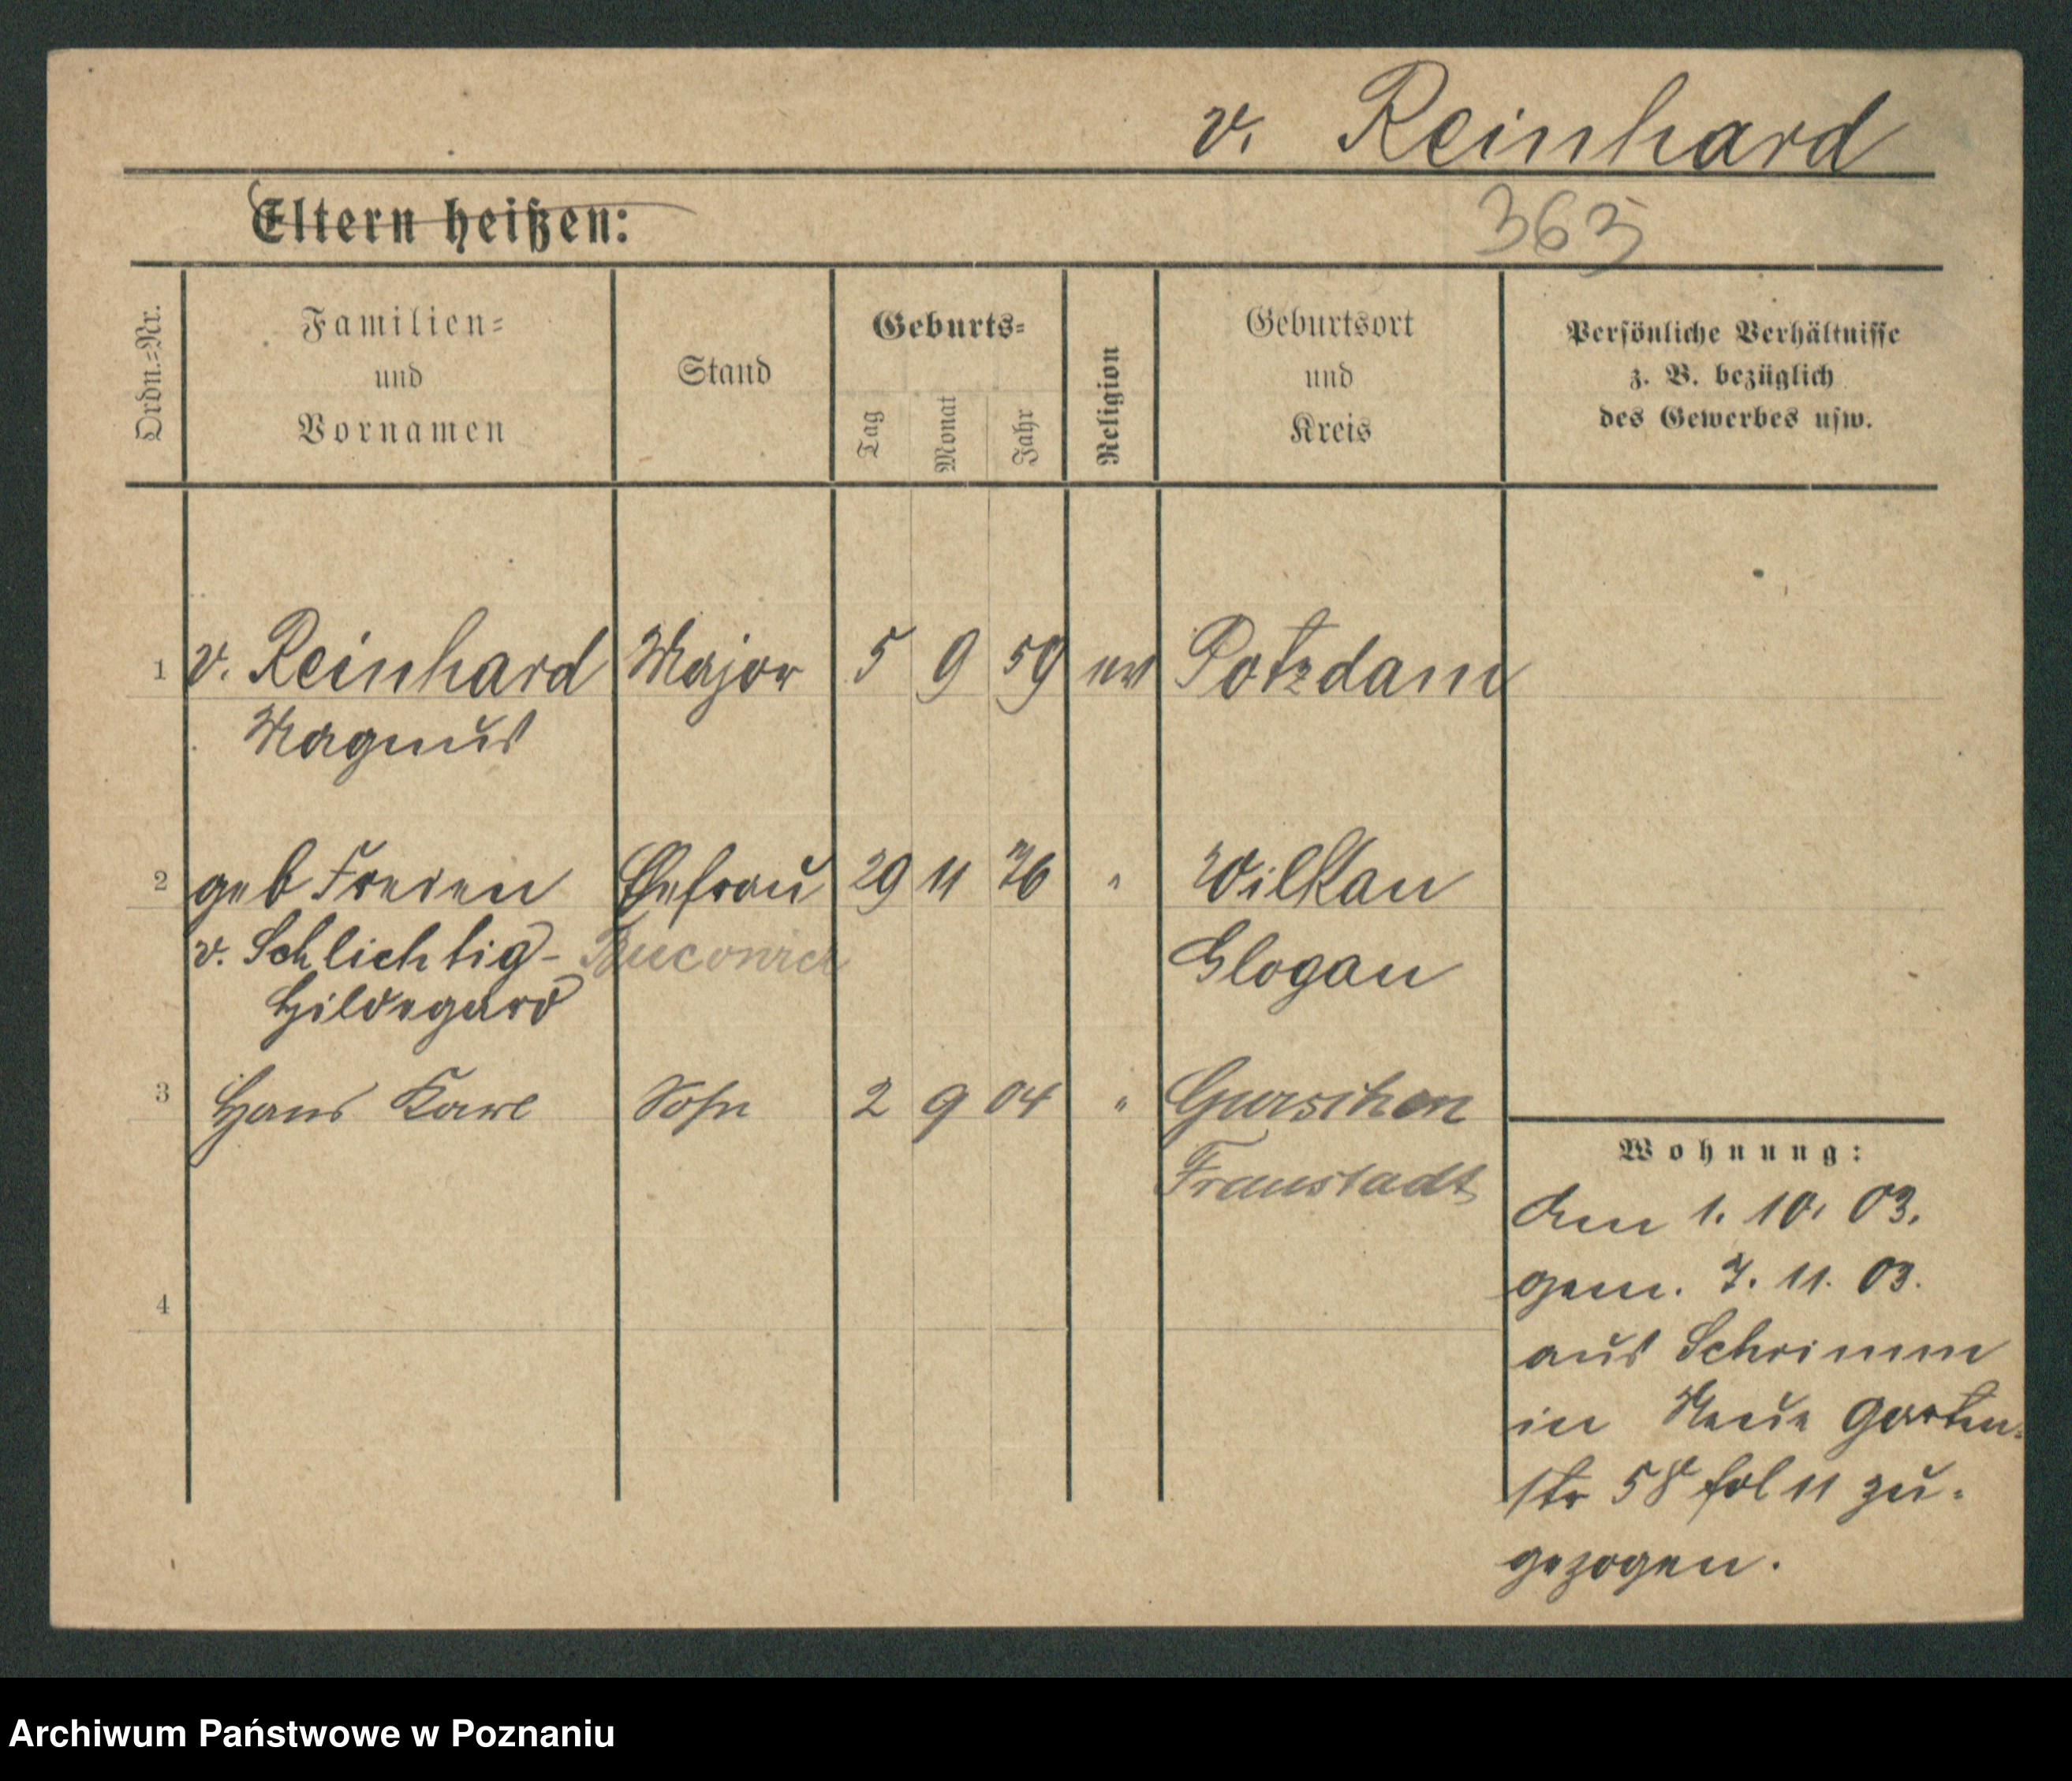 v. Reinhard
Eltern heißen:
363
Ordn.=Nr.
Familien=
und
Vornamen
Stand
Geburts=
Tag
Monat
Jahr
Religion
Geburtsort
und
Kreis
Persönliche Verhältnisse
z. B. bezüglich
des Gewerbes usw.
1 v. Reinhard Major 5 9 59 ev Potzdam
Magnus
2 geb Freiin Ehefrau 29 11 76 " Wilkau
v. Schlichtig- Buconica
Glogau
Hildegard
3 Hans Karl Sohn 2 9 04 " Gurschen
Fraustadt
4
Wohnung:
den 1. 10. 03.
gem. 7. 11. 03.
aus Schrimm
in Neue Garten-
str 58 fol 11 zu-
gezogen.
Archiwum Państwowe w Poznaniu